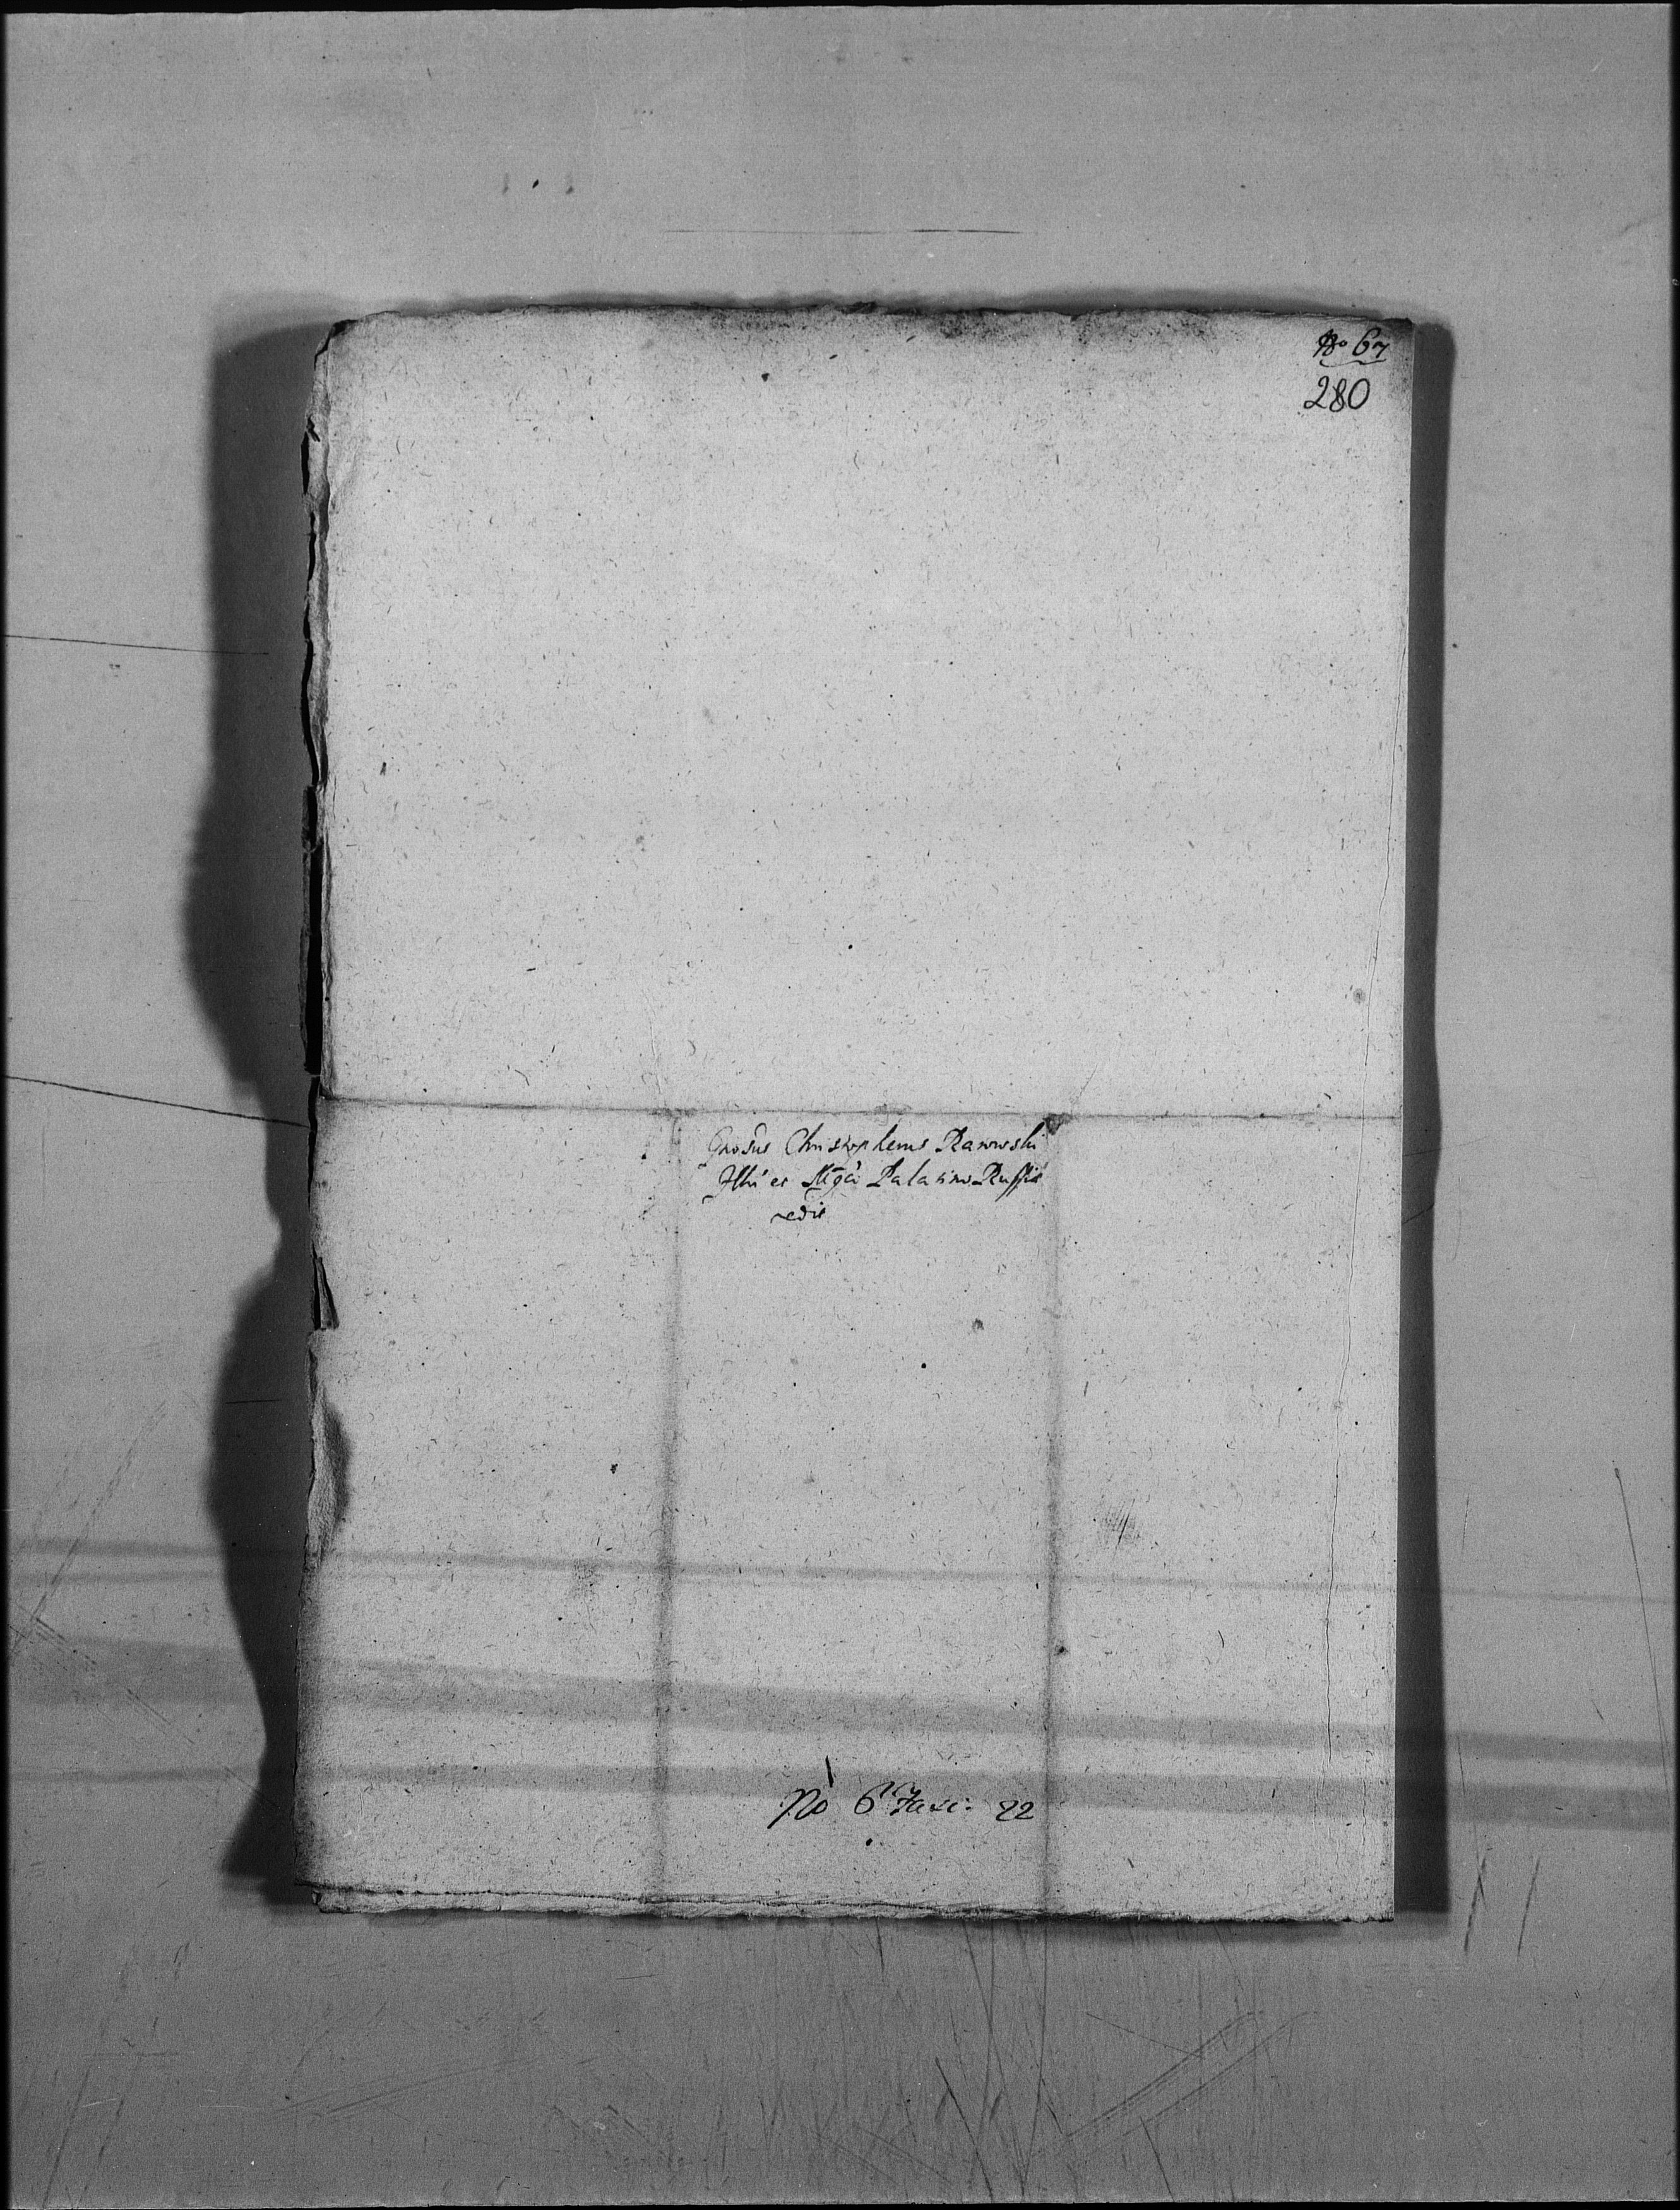 No 67
280
Gnosus Christopherus Rarowski
Illri et Mgco Palatino Russiae
redit
No 6 Fasc: 22